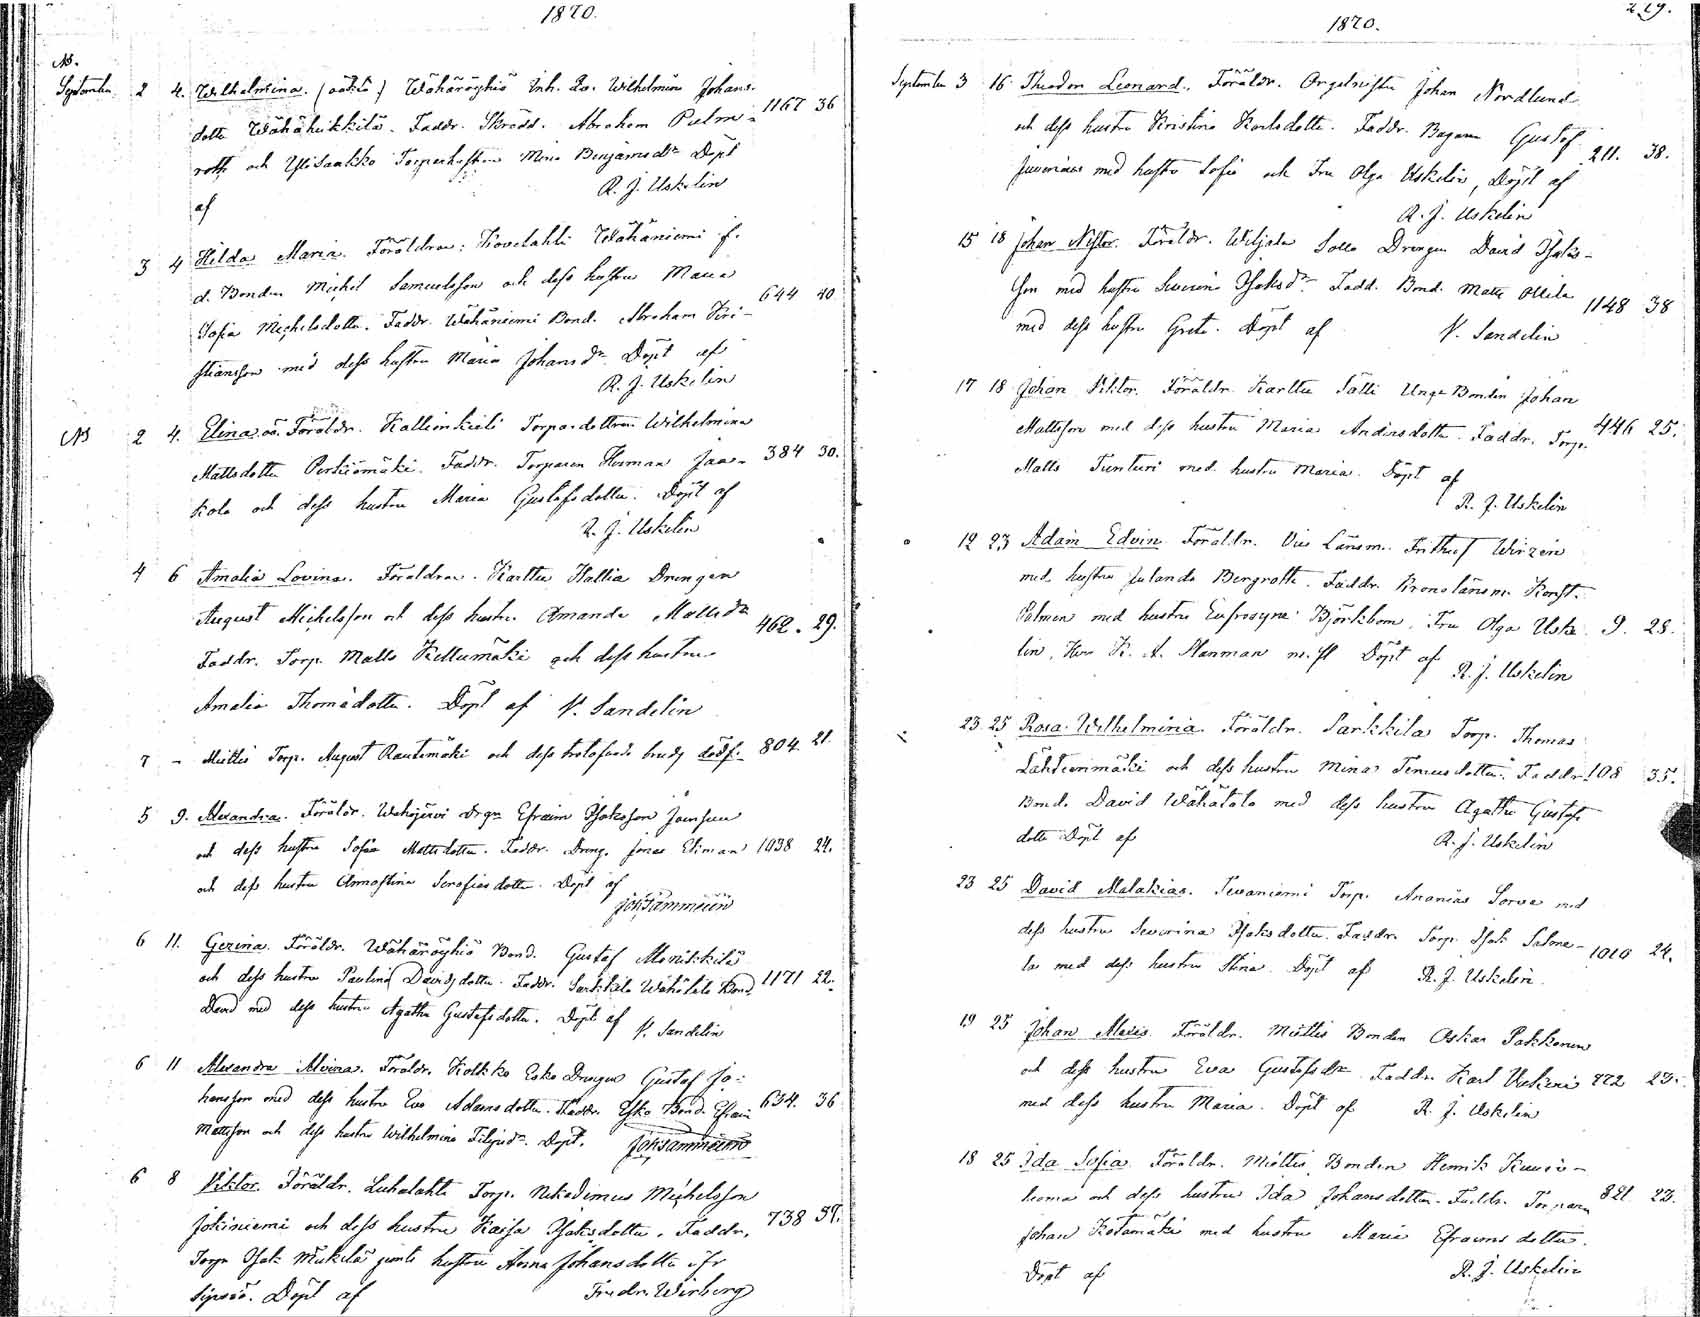 1870.
No.
September 2 4. Wilhelmina. (oäkta) Wähäröyhiö Inh. Qv. Wilhelmina Johans-
dotter Wähäheikkilä. Faddr. Skrädd. Abraham Palm- 1167 36
roth och Ylisaakko Torparhustrun Mina Benjamsdr Döpt
af R. J. Uskelin
3 4 Hilda Maria. Föräldrar: Kovelahti Wähäniemi f.
d. Bonden Michel Samuelsson och dess hustru Maria
Sofia Michelsdotter. Faddr. Wähäniemi Bond. Abraham Kri- 644 40
stiansson med dess hustru Maria Johansdr Döpt af
R. J. Uskelin
NB 2 4. Elina oä. Föräldr. Kallinkieli Torpare dottren Wilhelmina
Mattsdotter Perkiömäki. Faddr. Torparen Herman Jaa- 384 30.
kola och dess hustru Maria Gustafsdotter. Döpt af
R. J. Uskelin
4 6 Amalia Lovina. Föräldrar. Karttu Hallia Drengen
August Michelsson och dess hustru Amanda Mattsdr 462. 29.
Faddr. Torp. Matts Kellumäki och dess hustru
Amalia Thomådotter. Döpt af V. Sandelin
7 - Miettis Torp. August Rautimäki och dess trolofvade brudz dödf. 804. 21.
5 9. Alexandra. Föräldr. Wahojärvi drgn Efraim Isaksson
och dess hustru Sofia Mattsdotter. Faddr. Dreng. Jonas Eliman 1038 24.
och dess hustru Annastina Serafiasdotter. Döpt af
Joh Sammein
6 11. Gerina. Föräldr. Wähäröyhiö Bond. Gustaf
och dess hustru Paulina Davidsdotter. Faddr. Sarkkila Wähätalo Bond. 1171 22.
David med dess hustru Agatha Gustafsdotter. Döpt af V. Sandelin
6 11 Alexandra Alvina. Föräldr. Kolkko Esko Drengen Gustaf Jo-
hansson med dess hustru Eva Adamsdotter. Faddr. Esko Bond. Efraim 634. 36
Mattsson och dess hustru Wilhelmina Filpusdr. Döpt. Joh Sammein
6 8 Viktor. Föräldr. Luhalahti Torp. Nikodimus Michelsson
Jokiniemi och dess hustru Kaisa Isaksdotter. Faddr. 738 37.
Torpn Isak Mickilä jemte hustru Anna Johansdotter ifr
Sipsiö. Döpt af Fredr. Wirberg
1870. 219.
September 3 16 Theodor Leonard. Föräldr. Orgelnisten Johan Nordlund
och dess hustru Kristina Karlsdotter. Faddr. Bagaren Gustaf
Juvenius med hustru Sofia och Fru Olga Uskelin, Döpt af 211. 38.
R. J. Uskelin
15 18 Johan Nestor. Föräldr. Wiljala Salla Drengen David Isaks-
son med hustru Severina Isaksdr Fadd. Bond. Matts Ollila 1148 38
med dess hustru Greta. Döpt af V. Sandelin
17 18 Johan Viktor. Föräldr. Karttu Sälli Unge Bonden Johan
Mattsson med dess hustru Maria Andersdotter. Faddr. Torp. 446 25.
Matts Tunturi med hustru Maria. Döpt af
R. J. Uskelin
12 23 Adam Edvin. Föräldr. Vice Länsm. Frithiof Wirzen
med hustru Julanda Bergroth. Faddr. Kronolänsm. Konst.
Palmen med hustru Eufrosyne Björkbom, Fru Olga Uske- 9. 28.
lin, Herr K. A. Manman m. fl. Döpt af R. J. Uskelin
23 25 Rosa Wilhelmina. Föräldr. Sarkkila Torp. Thomas
Lähteenmäki och dess hustru Mina Temusdotter. Faddr. 108 35.
Bond. David Wähätalo med dess hustru Agatha Gustafs
dotter Döpt af R. J. Uskelin
23 25 David Malakias. Tevaniemi Torp. Ananias Sorva med
dess hustru Severina Isaksdotter. Faddr. Torp. Isak Salme-
la med dess hustru Stina. Döpt af R. J. Uskelin. 1010 24.
19 25 Johan Alexis. Föräldr. Miettis Bonden Oskar Pakkanen
och dess hustru Eva Gustafsdr Faddr. Karl Uskeni 872 23.
med dess hustru Maria. Döpt af R. J. Uskelin
18 25 Ida Sofia. Föräldr. Miettis Bonden Henrik Kuusi-
luoma och dess hustru Ida Johansdotter. Faddr. Torparen 821 23.
Johan Katamäki med hustru Maria Efraimsdotter.
Döpt af R. J. Uskelin